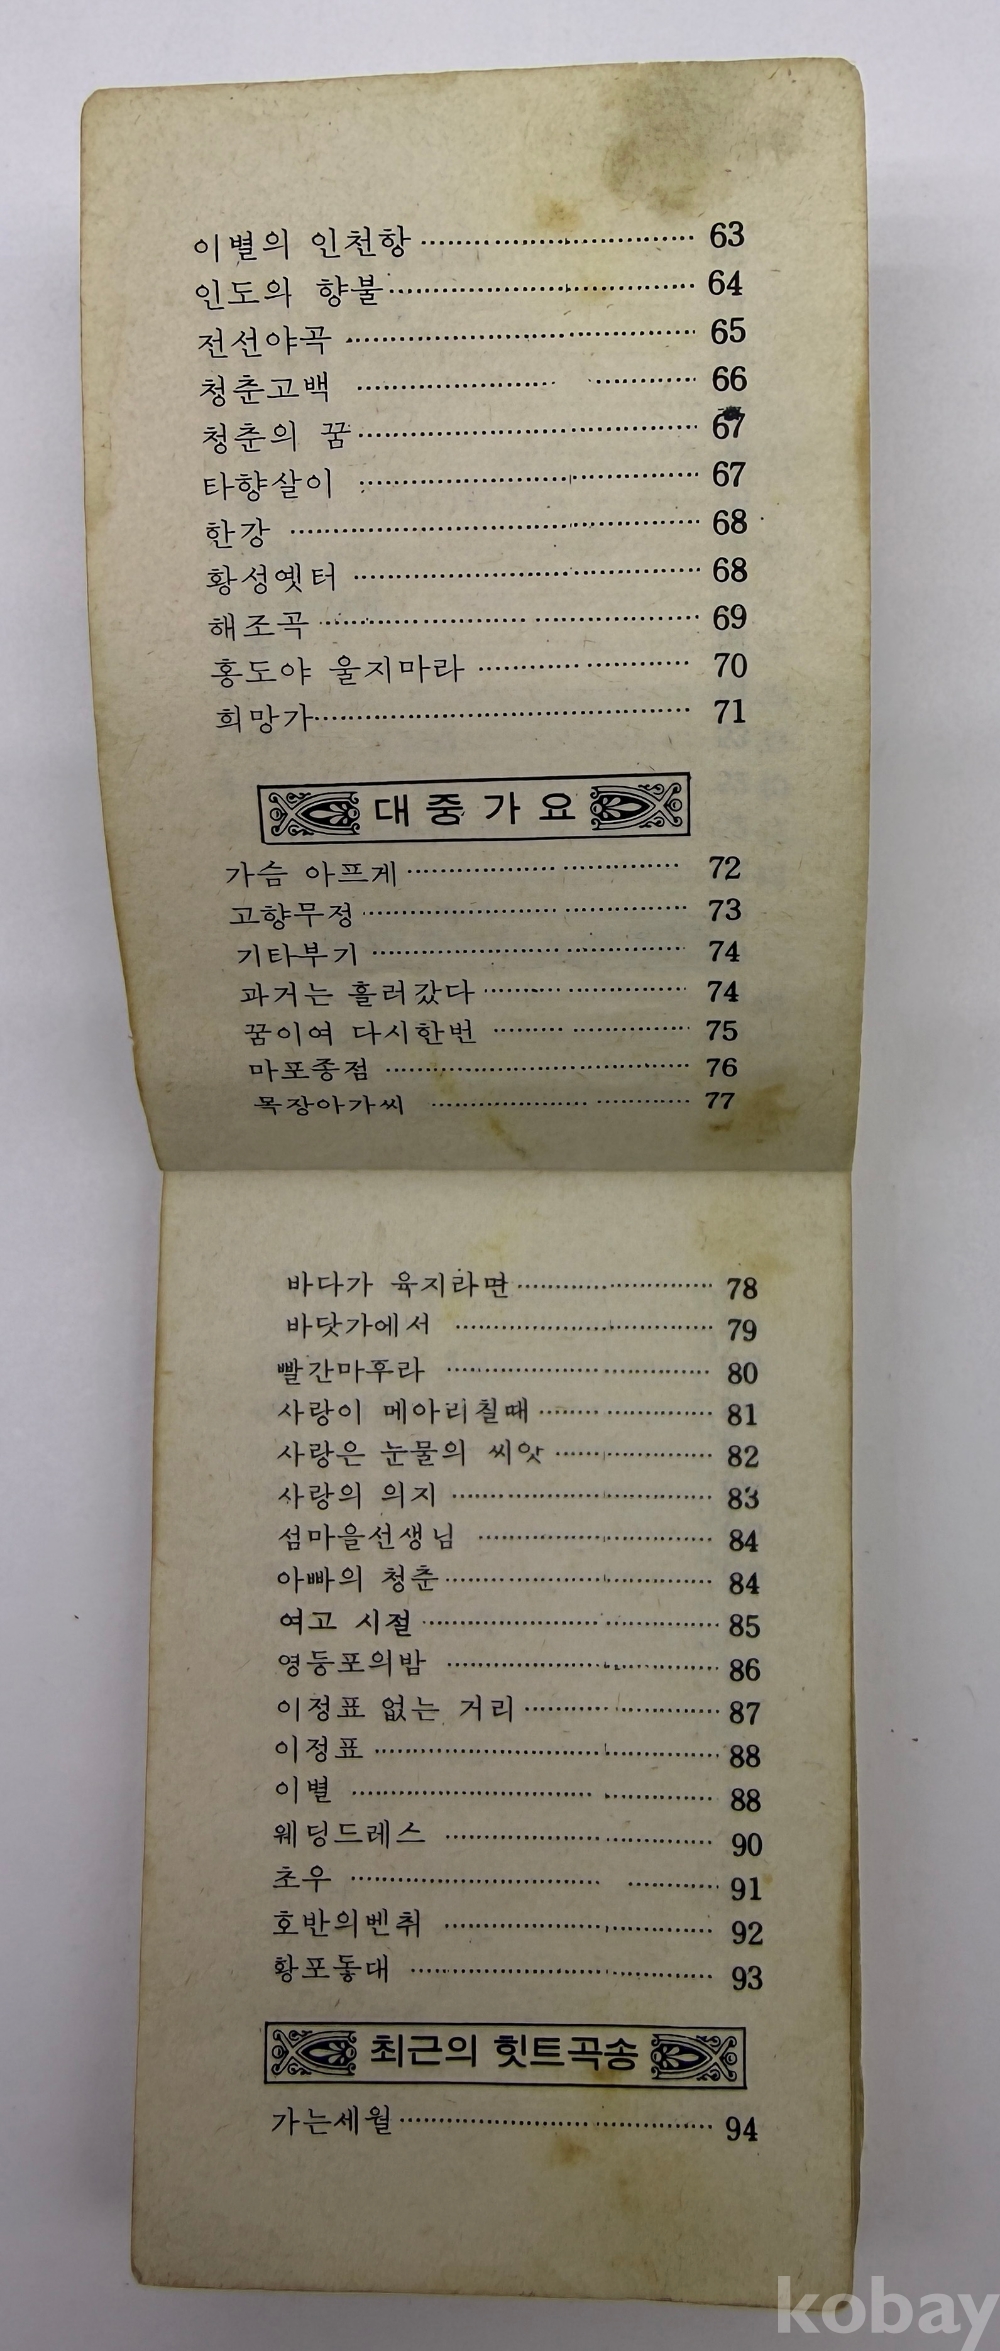 이별의 인천항 63
인도의 향불 64
전선야곡 65
청춘고백 66
청춘의 꿈 67
타향살이 67
한강 68
황성옛터 68
해조곡 69
홍도야 울지마라 70
희망가 71
대중가요
가슴 아프게 72
고향무정 73
기타부기 74
과거는 흘러갔다 74
꿈이여 다시한번 75
마포종점 76
목장아가씨 77
바다가 육지라면 78
바닷가에서 79
빨간마후라 80
사랑이 메아리칠때 81
사랑은 눈물의 씨앗 82
사랑의 의지 83
섬마을선생님 84
아빠의 청춘 84
여고 시절 85
영등포의밤 86
이정표 없는 거리 87
이정표 88
이별 88
웨딩드레스 90
초우 91
호반의벤취 92
황포돛대 93
최근의 힛트곡송
가는세월 94
kobay